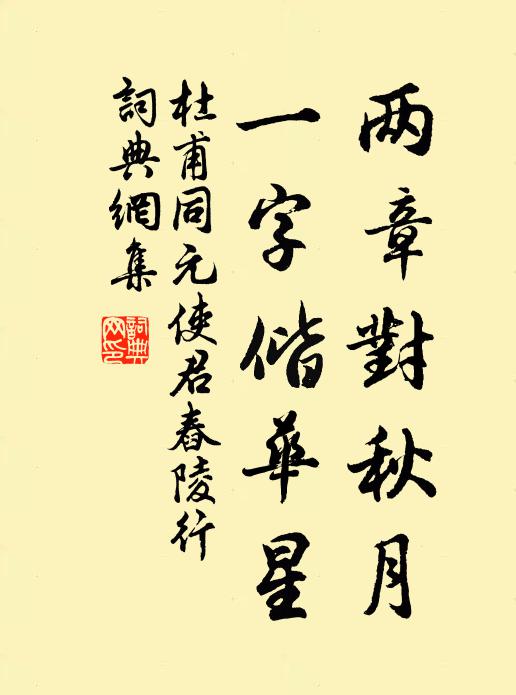 两章對秋月
一字偕華星
杜甫同元使君舂陵行
詞典網集
詞典
网印